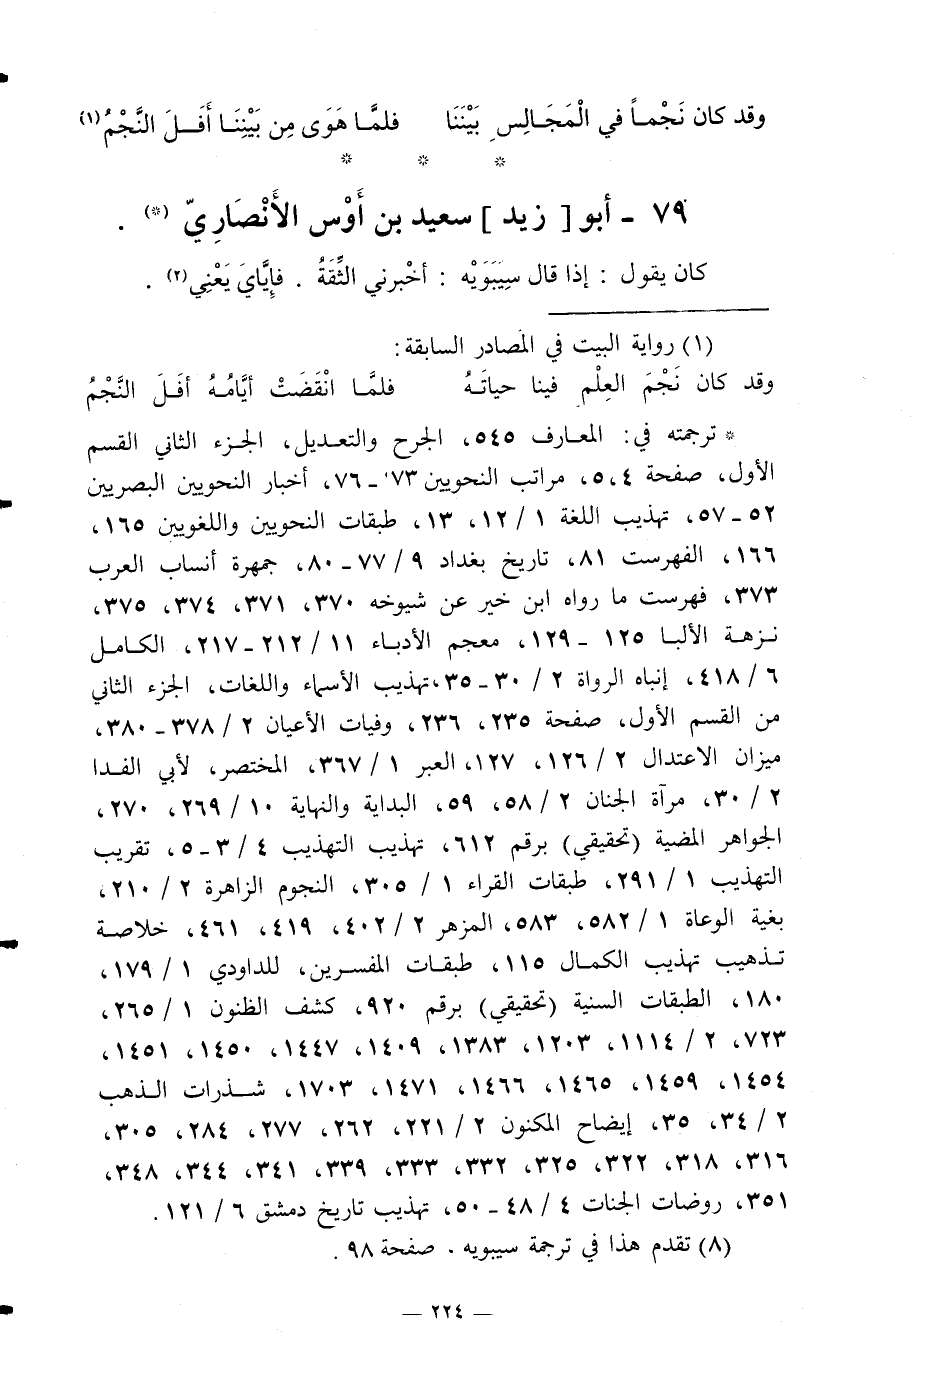 وقد كان نَجْمـاً في الْمَجَـالِسِ بَيْنَنَا فلمَّا هَوَى مِن بَيْنِنَـا أَفَـلَ النَّجْمُ (١)
* * *
٧٩ - أبو [ زيد ] سعيد بن أَوْس الأَنْصَارِيّ (*) .
كان يقول : إذا قال سِيبَوَيْه : أخْبرني الثِّقَةُ . فإِيَّايَ يَعْنِي (٢) .
(١) رواية البيت في المصادر السابقة :
وقد كان نَجْمَ العِلْمِ فينا حياتَـهُ فلمَّـا انْقَضَتْ أيَّامُـهُ أفَـلَ النَّجْمُ
* ترجمته في : المعـارف ٥٤٥، الجرح والتعـديل، الجـزء الثاني القسم
الأول، صفحة ٤، ٥، مراتب النحويين ٧٣ - ٧٦، أخبار النحويين البصريين
٥٢ - ٥٧، تهذيب اللغة ١ / ١٢، ١٣، طبقات النحويين واللغويين ١٦٥،
١٦٦، الفهرست ٨١، تاريخ بغداد ٩ / ٧٧ - ٨٠، جمهرة أنساب العرب
٣٧٣، فهرست ما رواه ابن خير عن شيوخه ٣٧٠، ٣٧١، ٣٧٤، ٣٧٥،
نـزهـة الألبـا ١٢٥ - ١٢٩، معجم الأدبـاء ١١ / ٢١٢ - ٢١٧، الكـامـل
٦ / ٤١٨، إنباه الرواة ٢ / ٣٠ - ٣٥، تهذيب الأسماء واللغات، الجزء الثاني
من القسم الأول، صفحة ٢٣٥، ٢٣٦، وفيات الأعيان ٢ / ٣٧٨ - ٣٨٠،
ميزان الاعتدال ٢ / ١٢٦، ١٢٧، العبر ١ / ٣٦٧، المختصر، لأبي الفـدا
٢ / ٣٠، مرآة الجنان ٢ / ٥٨، ٥٩، البداية والنهاية ١٠ / ٢٦٩، ٢٧٠،
الجواهر المضية (تحقيقي) برقم ٦١٢، تهذيب التهذيب ٤ / ٣ - ٥، تقريب
التهذيب ١ / ٢٩١، طبقات القراء ١ / ٣٠٥، النجوم الزاهرة ٢ / ٢١٠،
بغية الوعاة ١ / ٥٨٢، ٥٨٣، المزهر ٢ / ٤٠٢، ٤١٩، ٤٦١، خلاصـة
تـذهيب تهذيب الكمـال ١١٥، طبقـات المفسـرين، للداودي ١ / ١٧٩،
١٨٠، الطبقات السنية (تحقيقي) برقم ٩٢٠، كشف الظنون ١ / ٢٦٥،
٧٢٣، ٢ / ١١١٤، ١٢٠٣، ١٣٨٣، ١٤٠٩، ١٤٤٧، ١٤٥٠، ١٤٥١،
١٤٥٤، ١٤٥٩، ١٤٦٥، ١٤٦٦، ١٤٧١، ١٧٠٣، شـذرات الـذهب
٢ / ٣٤، ٣٥، إيضاح المكنون ٢ / ٢٢١، ٢٦٢، ٢٧٧، ٢٨٤، ٣٠٥،
٣١٦، ٣١٨، ٣٢٢، ٣٢٥، ٣٣٢، ٣٣٣، ٣٣٩، ٣٤١، ٣٤٤، ٣٤٨،
٣٥١، روضات الجنات ٤ / ٤٨ - ٥٠، تهذيب تاريخ دمشق ٦ / ١٢١ .
(٨) تقدم هذا في ترجمة سيبويه . صفحة ٩٨ .
— ٢٢٤ —